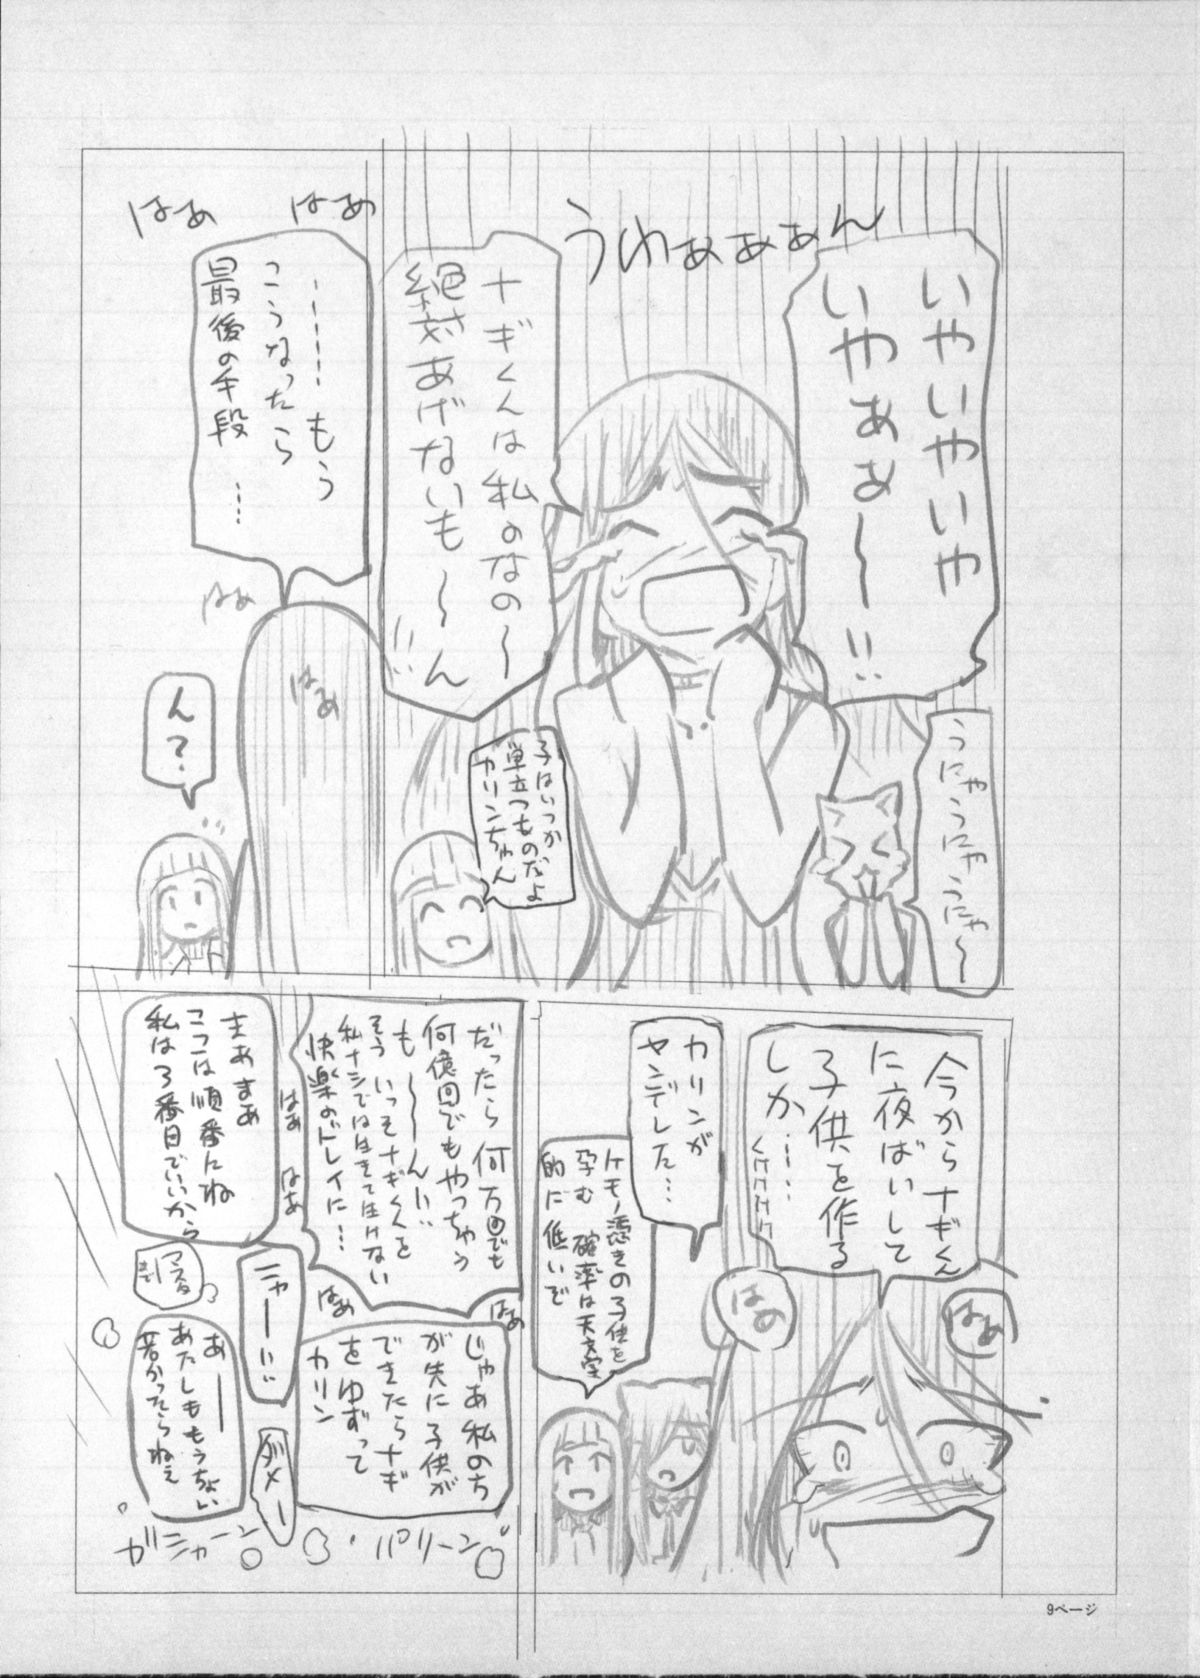 いやいやいや
いやぁぁ～!!
うわぁぁぁん
ナギくんは私のなの～
絶対あげないも～ん
!!
うにゃうにゃうにゃ～
子はいつか
巣立つものだよ
カリンちゃん
はぁ
はぁ
………もう
こうなったら
最後の手段
…
はぁ
はぁ
ん?
今からナギくん
に夜ばいして
子供を作る
しか……
ケケケケ
カリンが
ヤンデレた…
ケモノ憑きの子供を
孕む確率は天文学
的に低いで
はぁ
はぁ
だったら何万回でも
何億回でもやっちゃう
も～～ん!!
そういっそナギくんを
私ナシでは生きて行けない
快楽のドレイに…
はぁ
はぁ
はぁ
はぁ
まあまあ
ここは順番にね
私は3番目でいいから
じゃあ私のち
が先に子供が
できたらナギ
をゆずって
カリン
ニャーー!!
ダメー
マスター
まで!
あーー
あたしももうちょい
若かったらねえ
ガシャーン
パリーン
9ページ